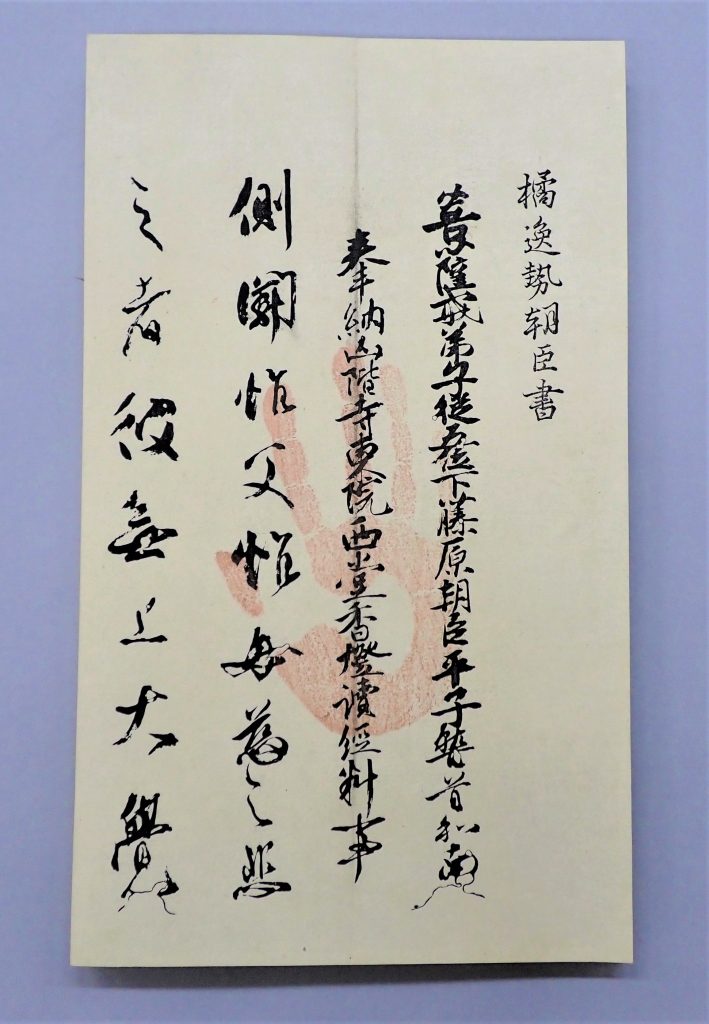 橘逸勢朝臣書
菩薩戒弟子從五位下藤原朝臣平子稽首和南
奉納山階寺東院西堂香燈讀經料事
側聞惟父惟母慈之悲
之者彼無上大覺